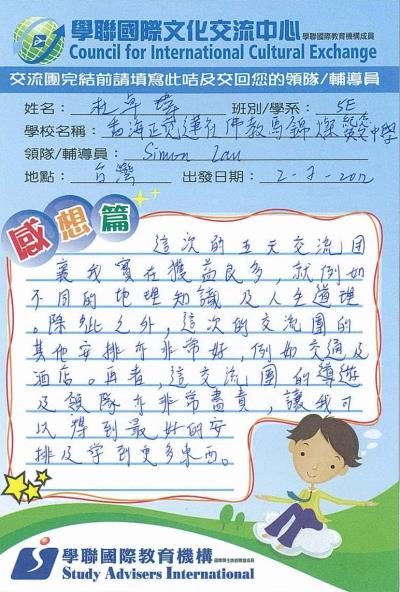 學聯國際文化交流中心 學聯國際教育機構成員
Council for International Cultural Exchange
交流團完結前請填寫此咭及交回您的領隊/輔導員
姓名： 杜卓瑋 班別/學系： 5E
學校名稱： 香海正覺蓮社佛教馬錦燦紀念中學
領隊/輔導員： Simon Lau
地點： 台灣 出發日期：
感想篇
這次的五天交流團
裏我實在獲益良多，就例如
不同的地理知識及人生道理
。除此之外，這次的交流團的
其他安排亦非常好，例如交通及
酒店。再者，這交流團的導遊
及領隊亦非常盡責，讓我可
以得到最好的安
排及學到更多東西。
學聯國際教育機構
Study Advisers International